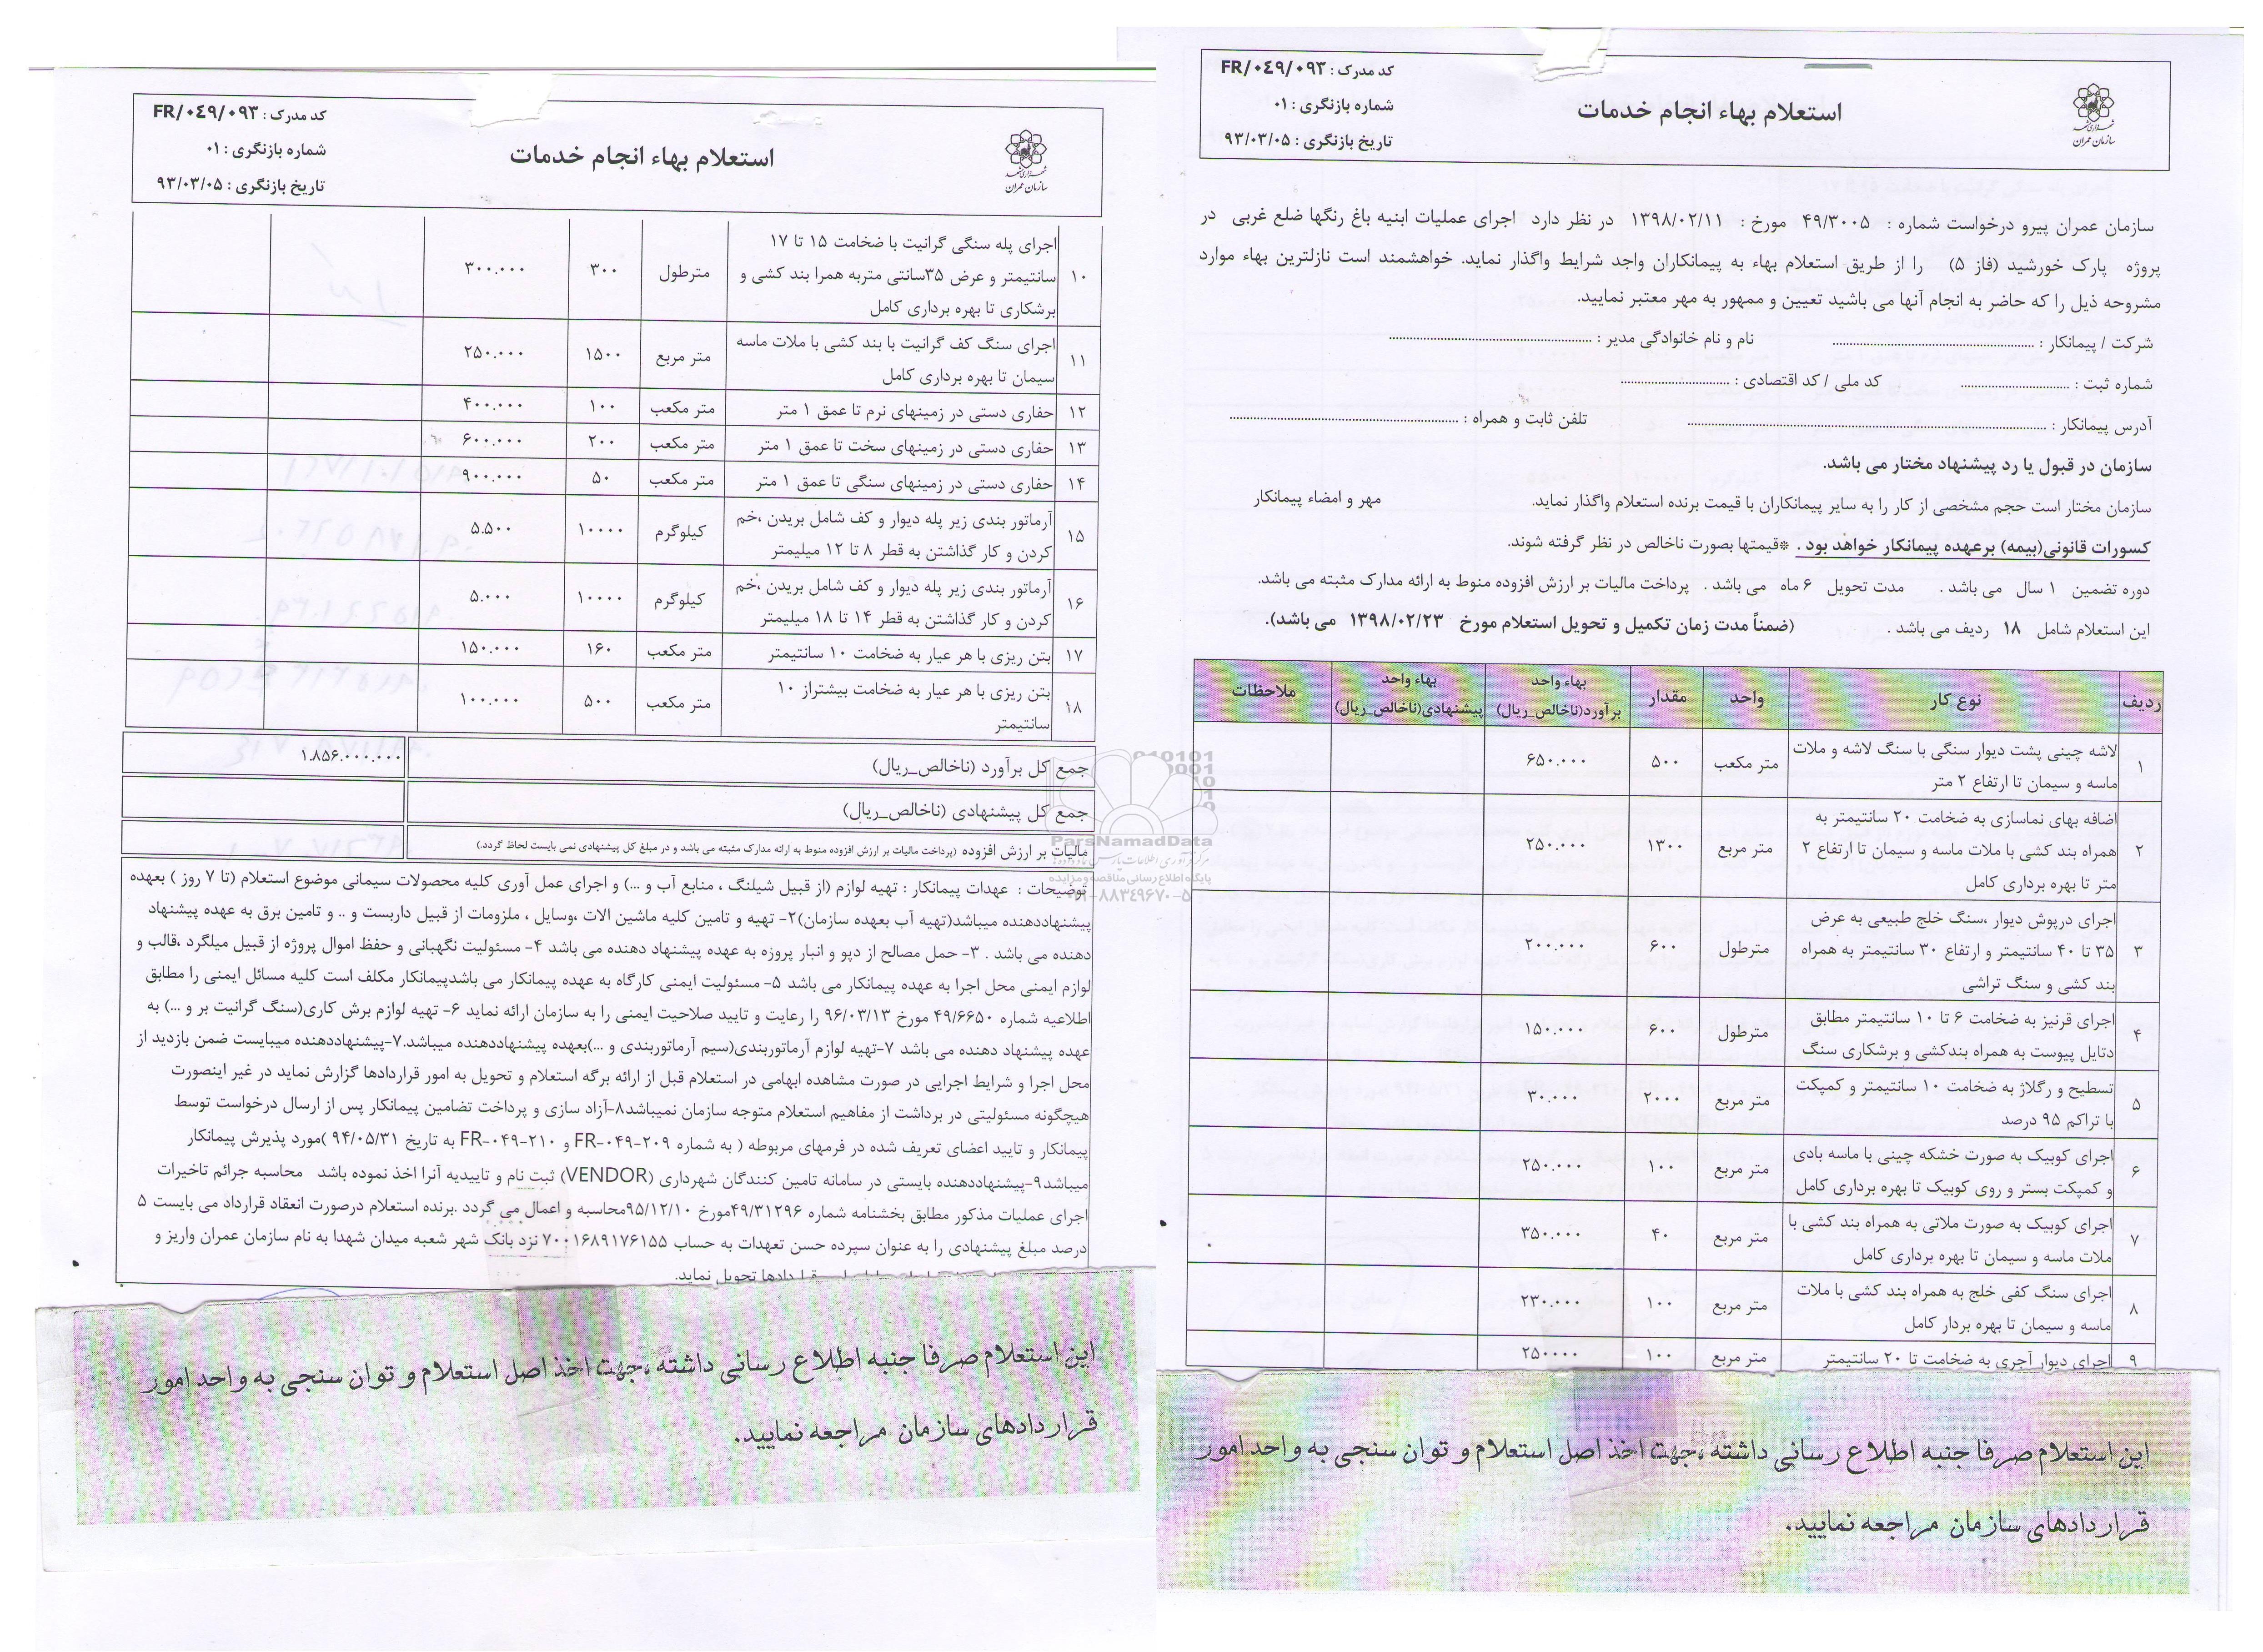 استعلام بهاء انجام خدمات
کد مدرک : FR/۰۴۹/۰۹۳
شماره بازنگری : ۰۱
تاریخ بازنگری : ۹۳/۰۳/۰۵
شهرداری مشهد
سازمان عمران
سازمان عمران پیرو درخواست شماره : ۴۹/۳۰۰۵ مورخ : ۱۳۹۸/۰۲/۱۱ در نظر دارد اجرای عملیات ابنیه باغ رنگها ضلع غربی در
پروژه پارک خورشید (فاز ۵) را از طریق استعلام بهاء به پیمانکاران واجد شرایط واگذار نماید. خواهشمند است نازلترین بهاء موارد
مشروحه ذیل را که حاضر به انجام آنها می باشید تعیین و ممهور به مهر معتبر نمایید.
شرکت / پیمانکار : نام و نام خانوادگی مدیر :
شماره ثبت : کد ملی / کد اقتصادی :
آدرس پیمانکار : تلفن ثابت و همراه :
سازمان در قبول یا رد پیشنهاد مختار می باشد.
سازمان مختار است حجم مشخصی از کار را به سایر پیمانکاران با قیمت برنده استعلام واگذار نماید. مهر و امضاء پیمانکار
کسورات قانونی(بیمه) برعهده پیمانکار خواهد بود . *قیمتها بصورت ناخالص در نظر گرفته شوند.
دوره تضمین ۱ سال می باشد . مدت تحویل ۶ ماه می باشد . پرداخت مالیات بر ارزش افزوده منوط به ارائه مدارک مثبته می باشد.
این استعلام شامل ۱۸ ردیف می باشد . (ضمناً مدت زمان تکمیل و تحویل استعلام مورخ ۱۳۹۸/۰۲/۲۳ می باشد).
ردیف نوع کار واحد مقدار بهاء واحد برآورد(ناخالص_ریال) بهاء واحد پیشنهادی(ناخالص_ریال) ملاحظات
۱ لاشه چینی پشت دیوار سنگی با سنگ لاشه و ملات
ماسه و سیمان تا ارتفاع ۲ متر متر مکعب ۵۰۰ ۶۵۰.۰۰۰
۲ اضافه بهای نماسازی به ضخامت ۲۰ سانتیمتر به
همراه بند کشی با ملات ماسه و سیمان تا ارتفاع ۲
متر تا بهره برداری کامل متر مربع ۱۳۰۰ ۲۵۰.۰۰۰
۳ اجرای درپوش دیوار ،سنگ خلج طبیعی به عرض
۳۵ تا ۴۰ سانتیمتر و ارتفاع ۳۰ سانتیمتر به همراه
بند کشی و سنگ تراشی مترطول ۶۰۰ ۲۰۰.۰۰۰
۴ اجرای قرنیز به ضخامت ۶ تا ۱۰ سانتیمتر مطابق
دتایل پیوست به همراه بندکشی و برشکاری سنگ مترطول ۶۰۰ ۱۵۰.۰۰۰
۵ تسطیح و رگلاژ به ضخامت ۱۰ سانتیمتر و کمپکت
با تراکم ۹۵ درصد متر مربع ۲۰۰۰ ۳۰.۰۰۰
۶ اجرای کوبیک به صورت خشکه چینی با ماسه بادی
و کمپکت بستر و روی کوبیک تا بهره برداری کامل متر مربع ۱۰۰ ۲۵۰.۰۰۰
۷ اجرای کوبیک به صورت ملاتی به همراه بند کشی با
ملات ماسه و سیمان تا بهره برداری کامل متر مربع ۴۰ ۳۵۰.۰۰۰
۸ اجرای سنگ کفی خلج به همراه بند کشی با ملات
ماسه و سیمان تا بهره بردار کامل متر مربع ۱۰۰ ۲۳۰.۰۰۰
۹ اجرای دیوار آجری به ضخامت تا ۲۰ سانتیمتر متر مربع ۱۰۰ ۲۵۰۰۰۰
این استعلام صرفا جنبه اطلاع رسانی داشته ،جهت اخذ اصل استعلام و توان سنجی به واحد امور
قراردادهای سازمان مراجعه نمایید.
استعلام بهاء انجام خدمات
کد مدرک : FR/۰۴۹/۰۹۳
شماره بازنگری : ۰۱
تاریخ بازنگری : ۹۳/۰۳/۰۵
شهرداری مشهد
سازمان عمران
۱۰ اجرای پله سنگی گرانیت با ضخامت ۱۵ تا ۱۷
سانتیمتر و عرض ۳۵سانتی متربه همرا بند کشی و
برشکاری تا بهره برداری کامل مترطول ۳۰۰ ۳۰۰.۰۰۰
۱۱ اجرای سنگ کف گرانیت با بند کشی با ملات ماسه
سیمان تا بهره برداری کامل متر مربع ۱۵۰۰ ۲۵۰.۰۰۰
۱۲ حفاری دستی در زمینهای نرم تا عمق ۱ متر متر مکعب ۱۰۰ ۴۰۰.۰۰۰
۱۳ حفاری دستی در زمینهای سخت تا عمق ۱ متر متر مکعب ۲۰۰ ۶۰۰.۰۰۰
۱۴ حفاری دستی در زمینهای سنگی تا عمق ۱ متر متر مکعب ۵۰ ۹۰۰.۰۰۰
۱۵ آرماتور بندی زیر پله دیوار و کف شامل بریدن ،خم
کردن و کار گذاشتن به قطر ۸ تا ۱۲ میلیمتر کیلوگرم ۱۰۰۰۰ ۵.۵۰۰
۱۶ آرماتور بندی زیر پله دیوار و کف شامل بریدن ،خم
کردن و کار گذاشتن به قطر ۱۴ تا ۱۸ میلیمتر کیلوگرم ۱۰۰۰۰ ۵.۰۰۰
۱۷ بتن ریزی با هر عیار به ضخامت ۱۰ سانتیمتر متر مکعب ۱۶۰ ۱۵۰.۰۰۰
۱۸ بتن ریزی با هر عیار به ضخامت بیشتراز ۱۰
سانتیمتر متر مکعب ۵۰۰ ۱۰۰.۰۰۰
جمع کل برآورد (ناخالص_ریال) ۱.۸۵۶.۰۰۰.۰۰۰
جمع کل پیشنهادی (ناخالص_ریال)
مالیات بر ارزش افزوده (پرداخت مالیات بر ارزش افزوده منوط به ارائه مدارک مثبته می باشد و در مبلغ کل پیشنهادی نمی بایست لحاظ گردد.)
توضیحات : عهدات پیمانکار : تهیه لوازم (از قبیل شیلنگ ، منابع آب و ...) و اجرای عمل آوری کلیه محصولات سیمانی موضوع استعلام (تا ۷ روز ) بعهده
پیشنهاددهنده میباشد(تهیه آب بعهده سازمان)۲- تهیه و تامین کلیه ماشین الات ،وسایل ، ملزومات از قبیل داربست و .. و تامین برق به عهده پیشنهاد
دهنده می باشد . ۳- حمل مصالح از دپو و انبار پروزه به عهده پیشنهاد دهنده می باشد ۴- مسئولیت نگهبانی و حفظ اموال پروژه از قبیل میلگرد ،قالب و
لوازم ایمنی محل اجرا به عهده پیمانکار می باشد ۵- مسئولیت ایمنی کارگاه به عهده پیمانکار می باشدپیمانکار مکلف است کلیه مسائل ایمنی را مطابق
اطلاعیه شماره ۴۹/۶۶۵۰ مورخ ۹۶/۰۳/۱۳ را رعایت و تایید صلاحیت ایمنی را به سازمان ارائه نماید ۶- تهیه لوازم برش کاری(سنگ گرانیت بر و ...) به
عهده پیشنهاد دهنده می باشد ۷-تهیه لوازم آرماتوربندی(سیم آرماتوربندی و ...)بعهده پیشنهاددهنده میباشد.۷-پیشنهاددهنده میبایست ضمن بازدید از
محل اجرا و شرایط اجرایی در صورت مشاهده ابهامی در استعلام قبل از ارائه برگه استعلام و تحویل به امور قراردادها گزارش نماید در غیر اینصورت
هیچگونه مسئولیتی در برداشت از مفاهیم استعلام متوجه سازمان نمیباشد۸-آزاد سازی و پرداخت تضامین پیمانکار پس از ارسال درخواست توسط
پیمانکار و تایید اعضای تعریف شده در فرمهای مربوطه ( به شماره FR-۰۴۹-۲۰۹ و FR-۰۴۹-۲۱۰ به تاریخ ۹۴/۰۵/۳۱ )مورد پذیرش پیمانکار
میباشد۹-پیشنهاددهنده بایستی در سامانه تامین کنندگان شهرداری (VENDOR) ثبت نام و تاییدیه آنرا اخذ نموده باشد محاسبه جرائم تاخیرات
اجرای عملیات مذکور مطابق بخشنامه شماره ۴۹/۳۱۲۹۶مورخ ۹۵/۱۲/۱۰محاسبه و اعمال می گردد .برنده استعلام درصورت انعقاد قرارداد می بایست ۵
درصد مبلغ پیشنهادی را به عنوان سپرده حسن تعهدات به حساب ۷۰۰۱۶۸۹۱۷۶۱۵۵ نزد بانک شهر شعبه میدان شهدا به نام سازمان عمران واریز و
قراردادها تحویل نماید.
این استعلام صرفا جنبه اطلاع رسانی داشته ،جهت اخذ اصل استعلام و توان سنجی به واحد امور
قراردادهای سازمان مراجعه نمایید.
ParsNamadData
پایگاه اطلاع رسانی مناقصه و مزایده
۸۸۳۴۹۶۷۰-۵